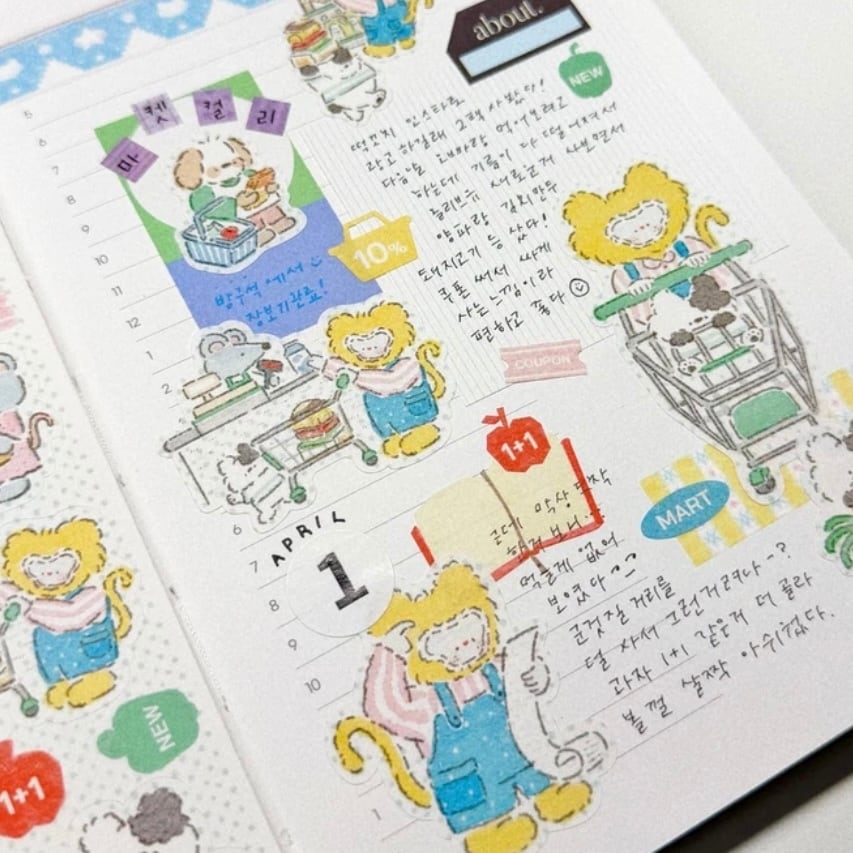 about.
NEW
마 켓 컬 리
떡꼬치 인스타로
광고하길래 그땜 사봤당!
다음날 도바랑 먹어보려고
하는데 기름이 다 떨어져서
올리브유 새로운거 사보면서
양파랑 김치만두
돼지고기 등 샀다!
쿠폰 써서 싸게
사는느낌이라
편하고 좋다
10%
방구석에서
장보기완료!
COUPON
1+1
MART
APRIL
1
근데 막상 도착
한거 보니..
먹을게 없어
보였다
군것질 거리를
덜 사서 그런거려나~?
과자 1+1 같은거 더 골라
볼껄 살짝 아쉬웠다.
NEW
1+1
5
6
7
8
9
10
11
12
1
2
6
7
8
9
10
1